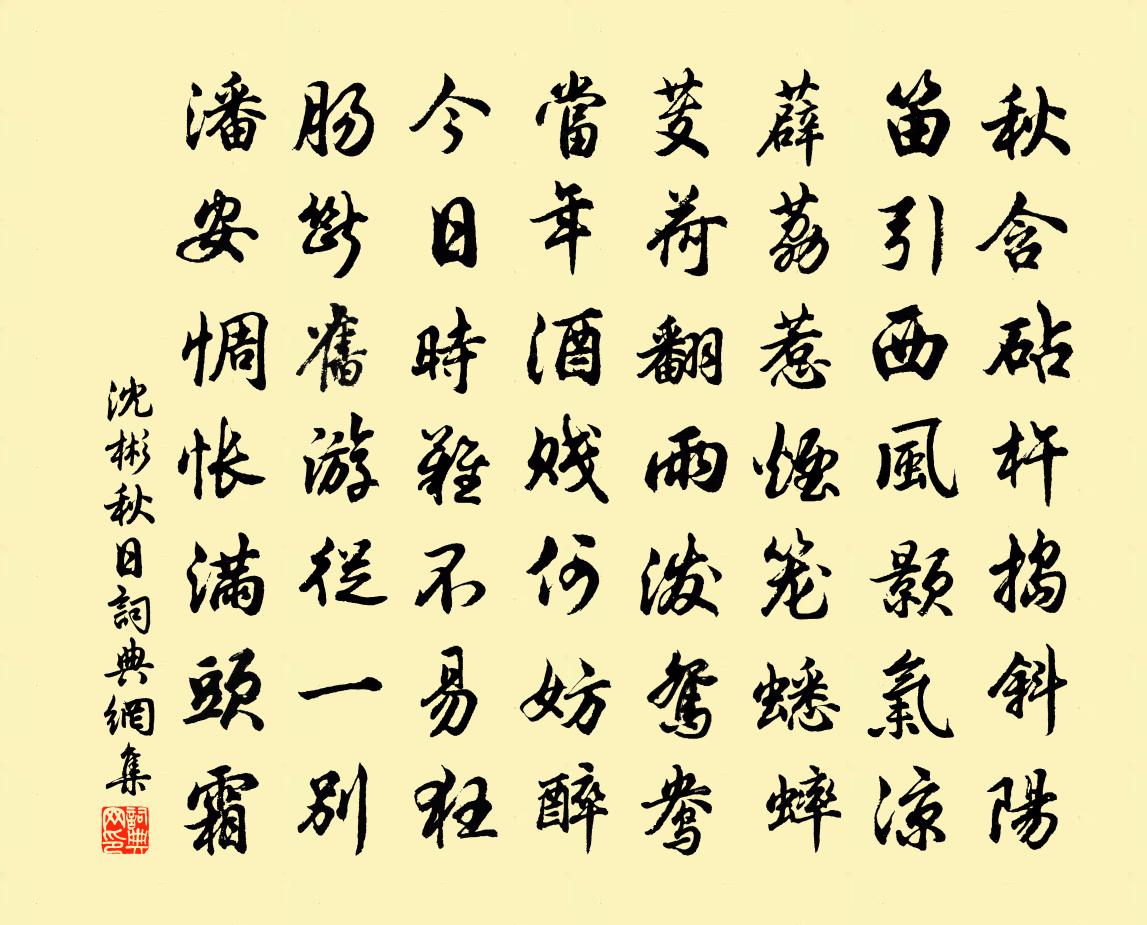 秋含砧杵搗斜陽
笛引西風顥氣涼
薜荔惹煙笼蟋蟀
芰荷翻雨潑鴛鴦
當年酒賤何妨醉
今日時難不易狂
腸斷舊游從一別
潘安惆悵滿頭霜
沈彬秋日詞典網集
詞典网印